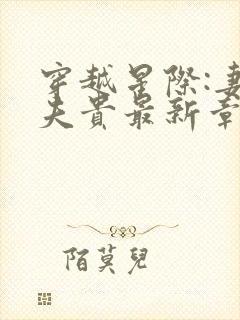 穿越星際:妻
夫貴最新章
陌莫兒